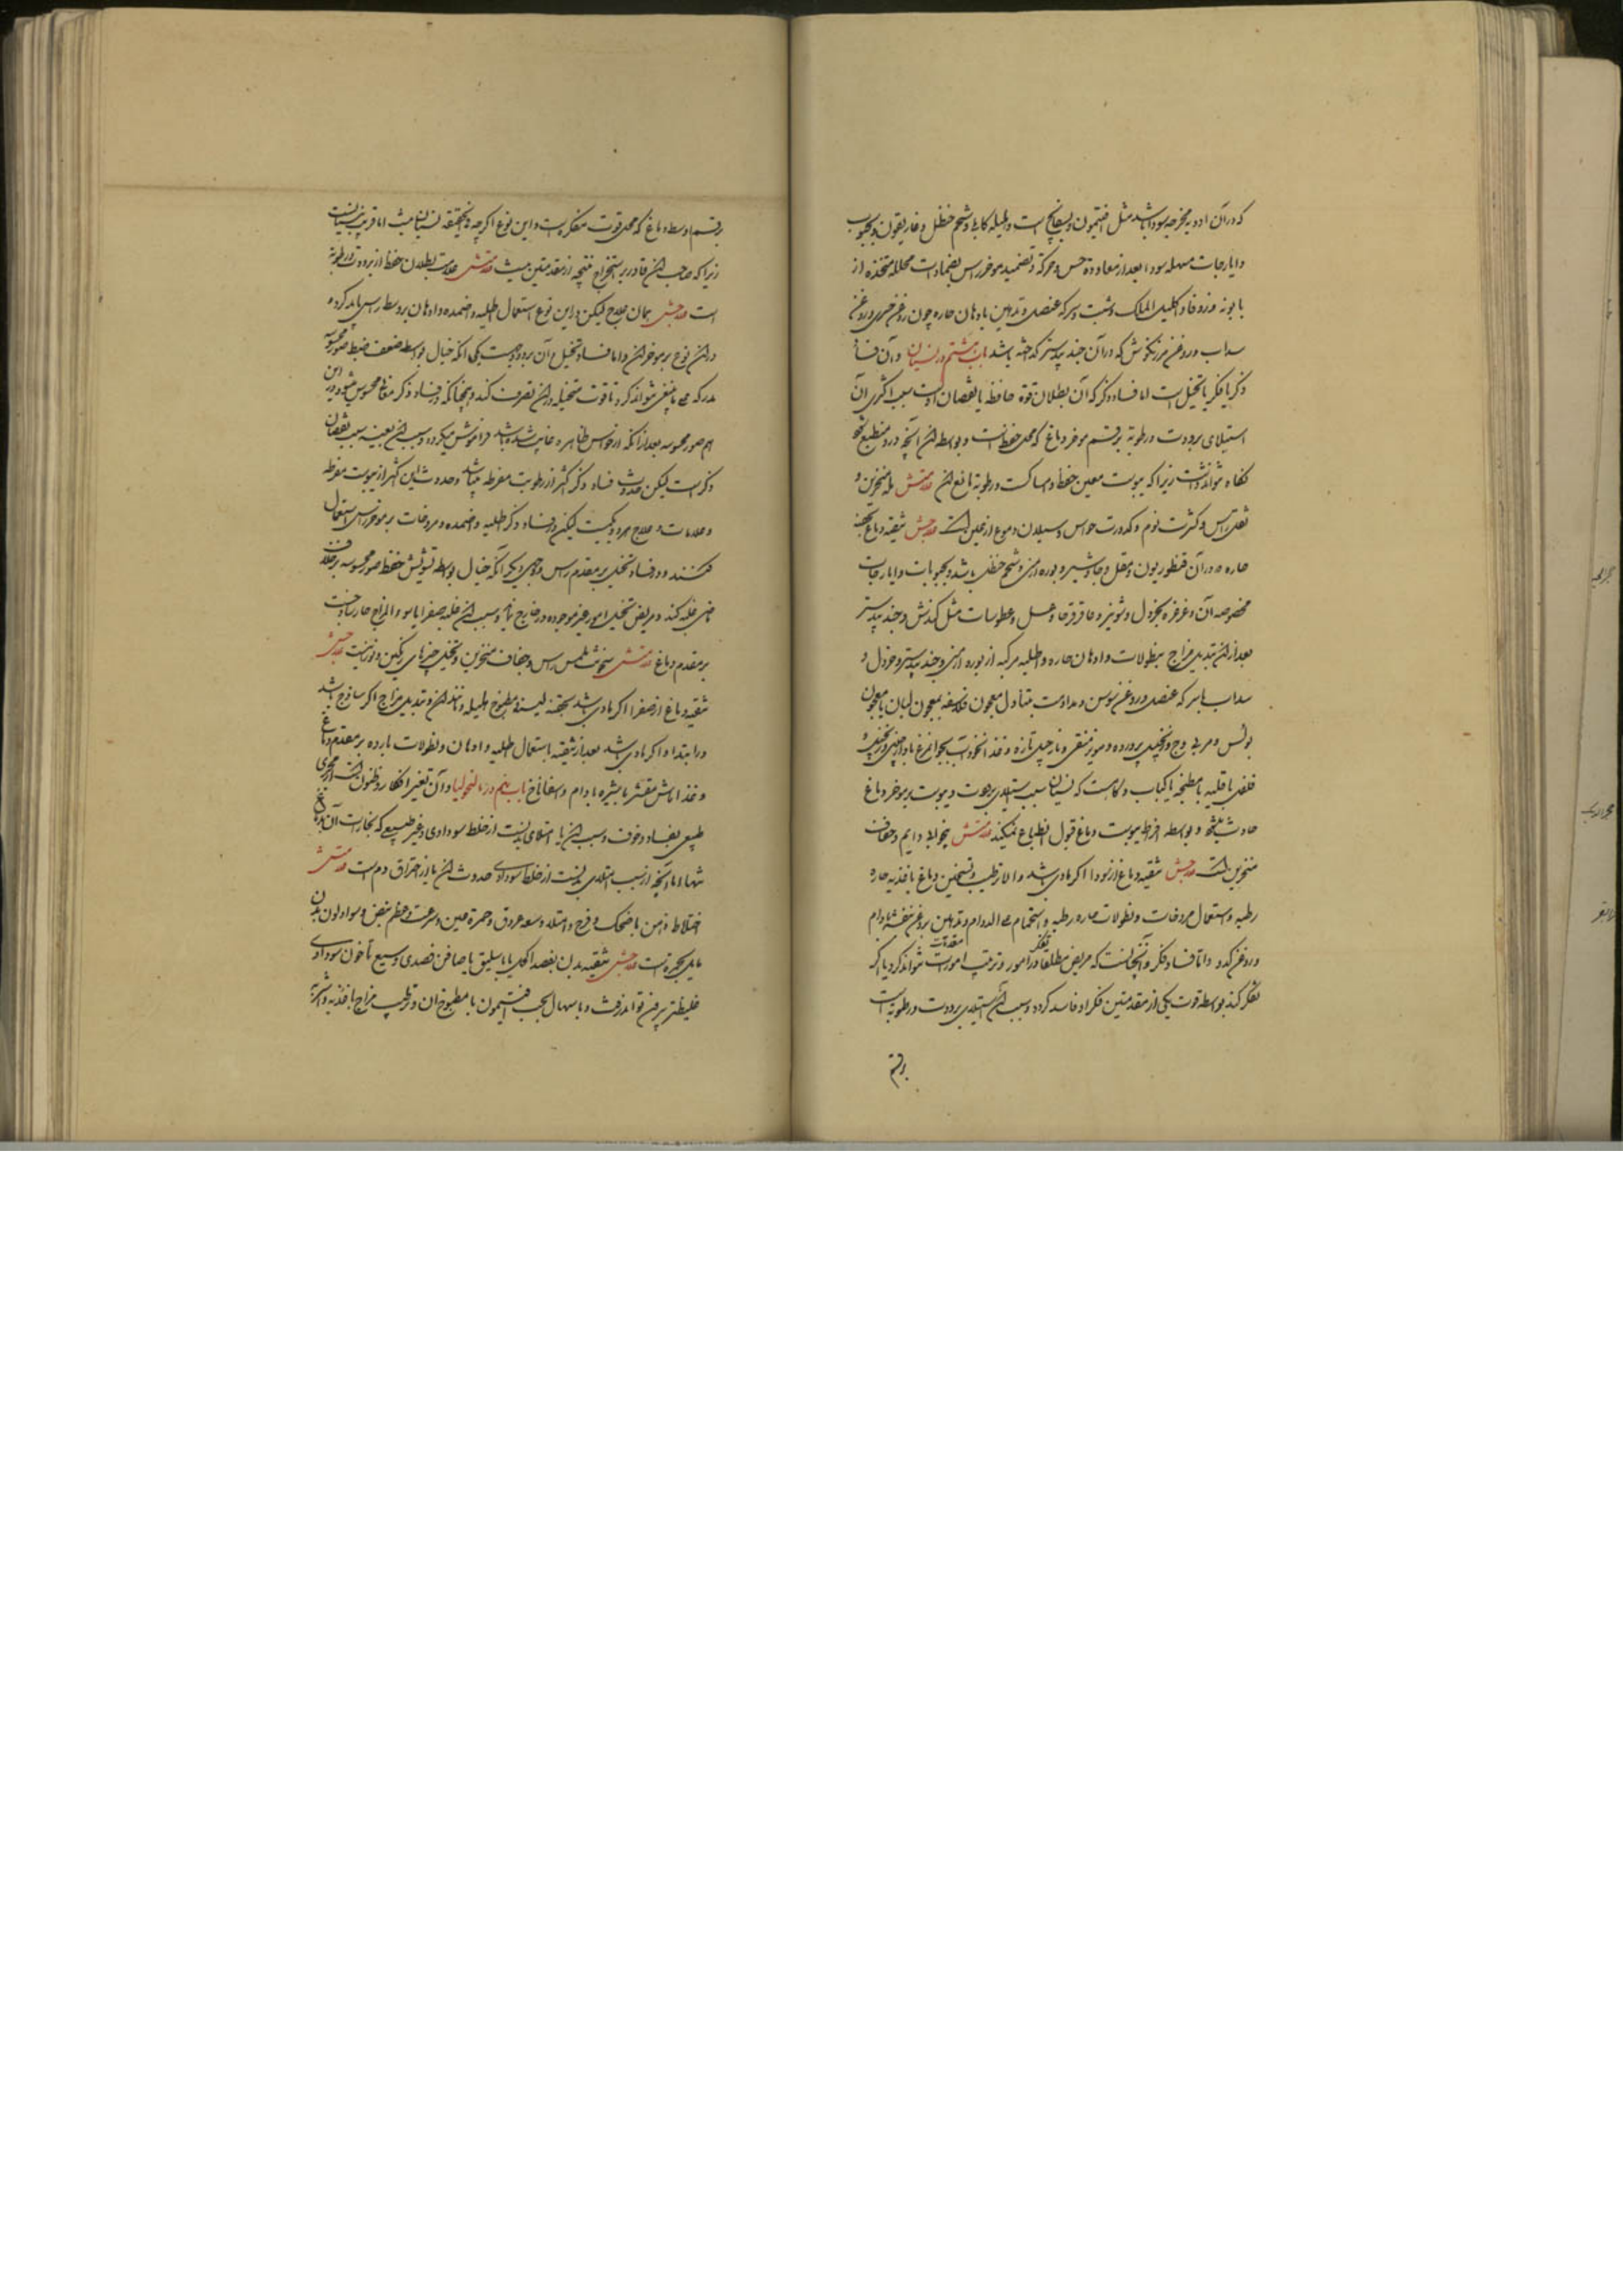 که در آن ادویه مخرجه سودا باشد مثل افتیمون و بسفایج است و هلیله کابلی و شحم حنظل و غاریقون و بحبوب
و ایارجات مسهله سودا بعد از معاودة حس و حرکة و تضمید موخر راس بضمادات محلله متخذه از
بابونه و زوفا و اکلیل الملک و شبت و سرکه عنصل و تدهین بادهان حاره چون روغن خیری و روغن
سداب و روغن مرزنکوش که در آن جند بیدستر کداخته باشد باب هشتم در نسیان و آن فساد
ذکر یا فکر یا تخیل است اما فساد ذکر که آن بطلان قوة حافظه یا نقصان اوست سبب اکثری آن
استیلای برودت و رطوبة بر قسم موخر دماغ که محل حفظ است و بواسطه آن آنچه درو منطبع شود
نکاه نتواند داشت زیرا که یبوست معین حفظ و امساکست و رطوبة مانع آن علامتش بله منخرین و
ثقل راس و کثرت نوم و کدورت حواس و سیلان دموع از عین است علاجش تنقیه دماغ بحقنه
حاره که در آن قنطوریون و مقل و جاوشیر و بوره ارمنی و شحم حنظل باشد و بحبوبات و ایارجات
مخصوصه آن و غرغره بخردل و شونیز و عاقرقرحا و عسل و عطوسات مثل کندش و جند بیدستر
بعد از آن تبدیل مزاج بنطولات و ادهان حاره و اطلیه مرکبه از بوره ارمنی و جند بیدستر و خردل و
سداب با سرکه عنصل و روغن سوسن و مداومت بتناول معجون فلاسفه یا معجون لبان یا معجون
بولس و مربی وج و زنجبیل پرورده و مویز منقی و نارجیل تازه و غذا نخوداب بجوانمرغ با دارچینی و زنجبیل و
فلفل یا قلیه یا مطنجه یا کباب و کاهست که نسیان بسبب استیلای برودت و یبوست بر موخر دماغ
حادث شود و بواسطه افراط یبوست دماغ قبول انطباع نمیکند علامتش بیخوابی دایم و جفاف
منخرین است علاجش تنقیه دماغ از سودا اکر مادی باشد و الا ترطیب و تسخین دماغ باغذیه حاره
رطبه و استعمال مروخات و نطولات حاره رطبه و استحمام علی الدوام و تدهین بروغن بنفشه بادام
و روغن کدو و اما فساد فکر و آن چنانست که مریض مطلقا تفکر در امور و ترتیب مقدمات امور نتواند کرد یا اکر
تفکر کند بواسطه فوت یکی از مقدمتین فکر او فاسد کردد و سبب آن استیلای برودت و رطوبة است
بر قسم
بر قسم اوسط دماغ که محل قوت متفکره است و این نوع اکرچه فی الحقیقه نسیان نیست اما قریب بنسیانست
زیرا که صاحب آن قادر بر استخراج نتیجه از مقدمتین نیست علامتش علامت بطلان حفظ از برودت و رطوبة
است علاجش همان علاج لیکن در این نوع استعمال اطلیه و اضمده و ادهان بر وسط راس باید کرد و
در آن نوع بر موخر آن و اما فساد تخیل و آن بر دو وجهست یکی آنکه خیال بواسطه ضعف ضبط صور محسوسه
مدرکه علی ما ینبغی نتواند کرد تا قوت متخیله در آن تصرف کند و همچنانکه در فساد ذکر معانی محسوس میشود درین
هم صور محسوسه بعد از آنکه از حواس ظاهره غایب شده باشد فراموش میکردد و سبب آن بعینه سبب نقصان
ذکر است لیکن حدوث فساد ذکر اکثر از رطوبت مفرطه میباشد و حدوث این اکثر از یبوست مفرطه
و علامات و علاج هر دو یکیست لیکن در فساد ذکر اطلیه و اضمده و مروخات بر موخر راس استعمال
میکنند و در فساد تخیل بر مقدم راس و وجهی دیکر آنکه خیال بواسطه تشویش حفظ صور محسوسه برخلاف
مریض تخیل امور غیر موجوده در خارج نماید و سبب آن غلبه صفرا یا سوء المزاج حار ساذجست
بر مقدم دماغ علامتش سخونت ملمس راس و جفاف منخرین و تخیل چیزهای رنکین علاجش
تنقیه دماغ از صفرا اکر مادی باشد بحقنه لینه و مطبوخ هلیله و مانند آن و تبدیل مزاج اکر ساذج باشد
در ابتدا و اکر مادی باشد بعد از تنقیه باستعمال اطلیه و ادهان و نطولات بارده بر مقدم دماغ
و غذا ماش مقشر با شیره بادام و اسفاناخ باب نهم در مالنخولیا و آن تغیر افکار و ظنونست از مجری
طبیعی بفساد و خوف و سبب آن یا امتلای بدنست از خلط سوداوی غیر طبیعی که بخارات آن بدماغ
اما آنچه از سبب امتلای بدنست از خلط سوداوی حدوث آن یا از احتراق دم است علامتش
اختلاط ذهن با ضحک و فرح و امتلا و سعه عروق و حمرة عین و سرعت و عظم نبض و سواد لون بدن
مایل بحمرتست علاجش تنقیه بدن بفصد اکحل یا باسلیق یا صافن فصدی وسیع تا خون سوداوی
غلیظ بیرون تواند رفت و باسهال بحب افتیمون یا مطبوخ آن و ترطیب مزاج باغذیه و اشربه